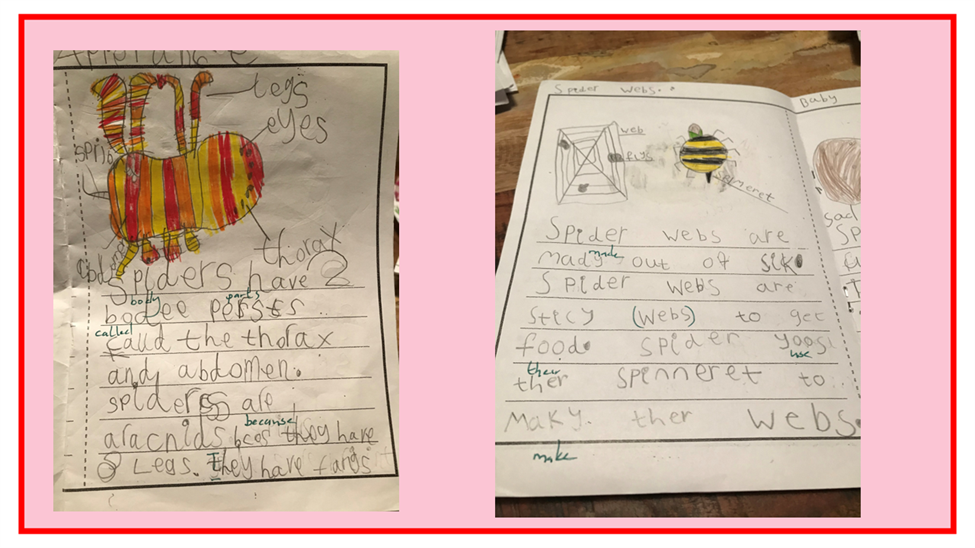 legs
eyes
thorax
Spiders have 2
body parts
bodee persts
called
caud the thorax
and abdomen.
spiders are
because
aracnids bcos they have
8 Legs. They have fangs
Spider webs.
Baby
web
flys
Spider webs are
made
mady out of sik
Spider webs are
sticy (webs) to get
food. spider yoos
use
their
ther spinneret to
maky. ther webs.
make
sad